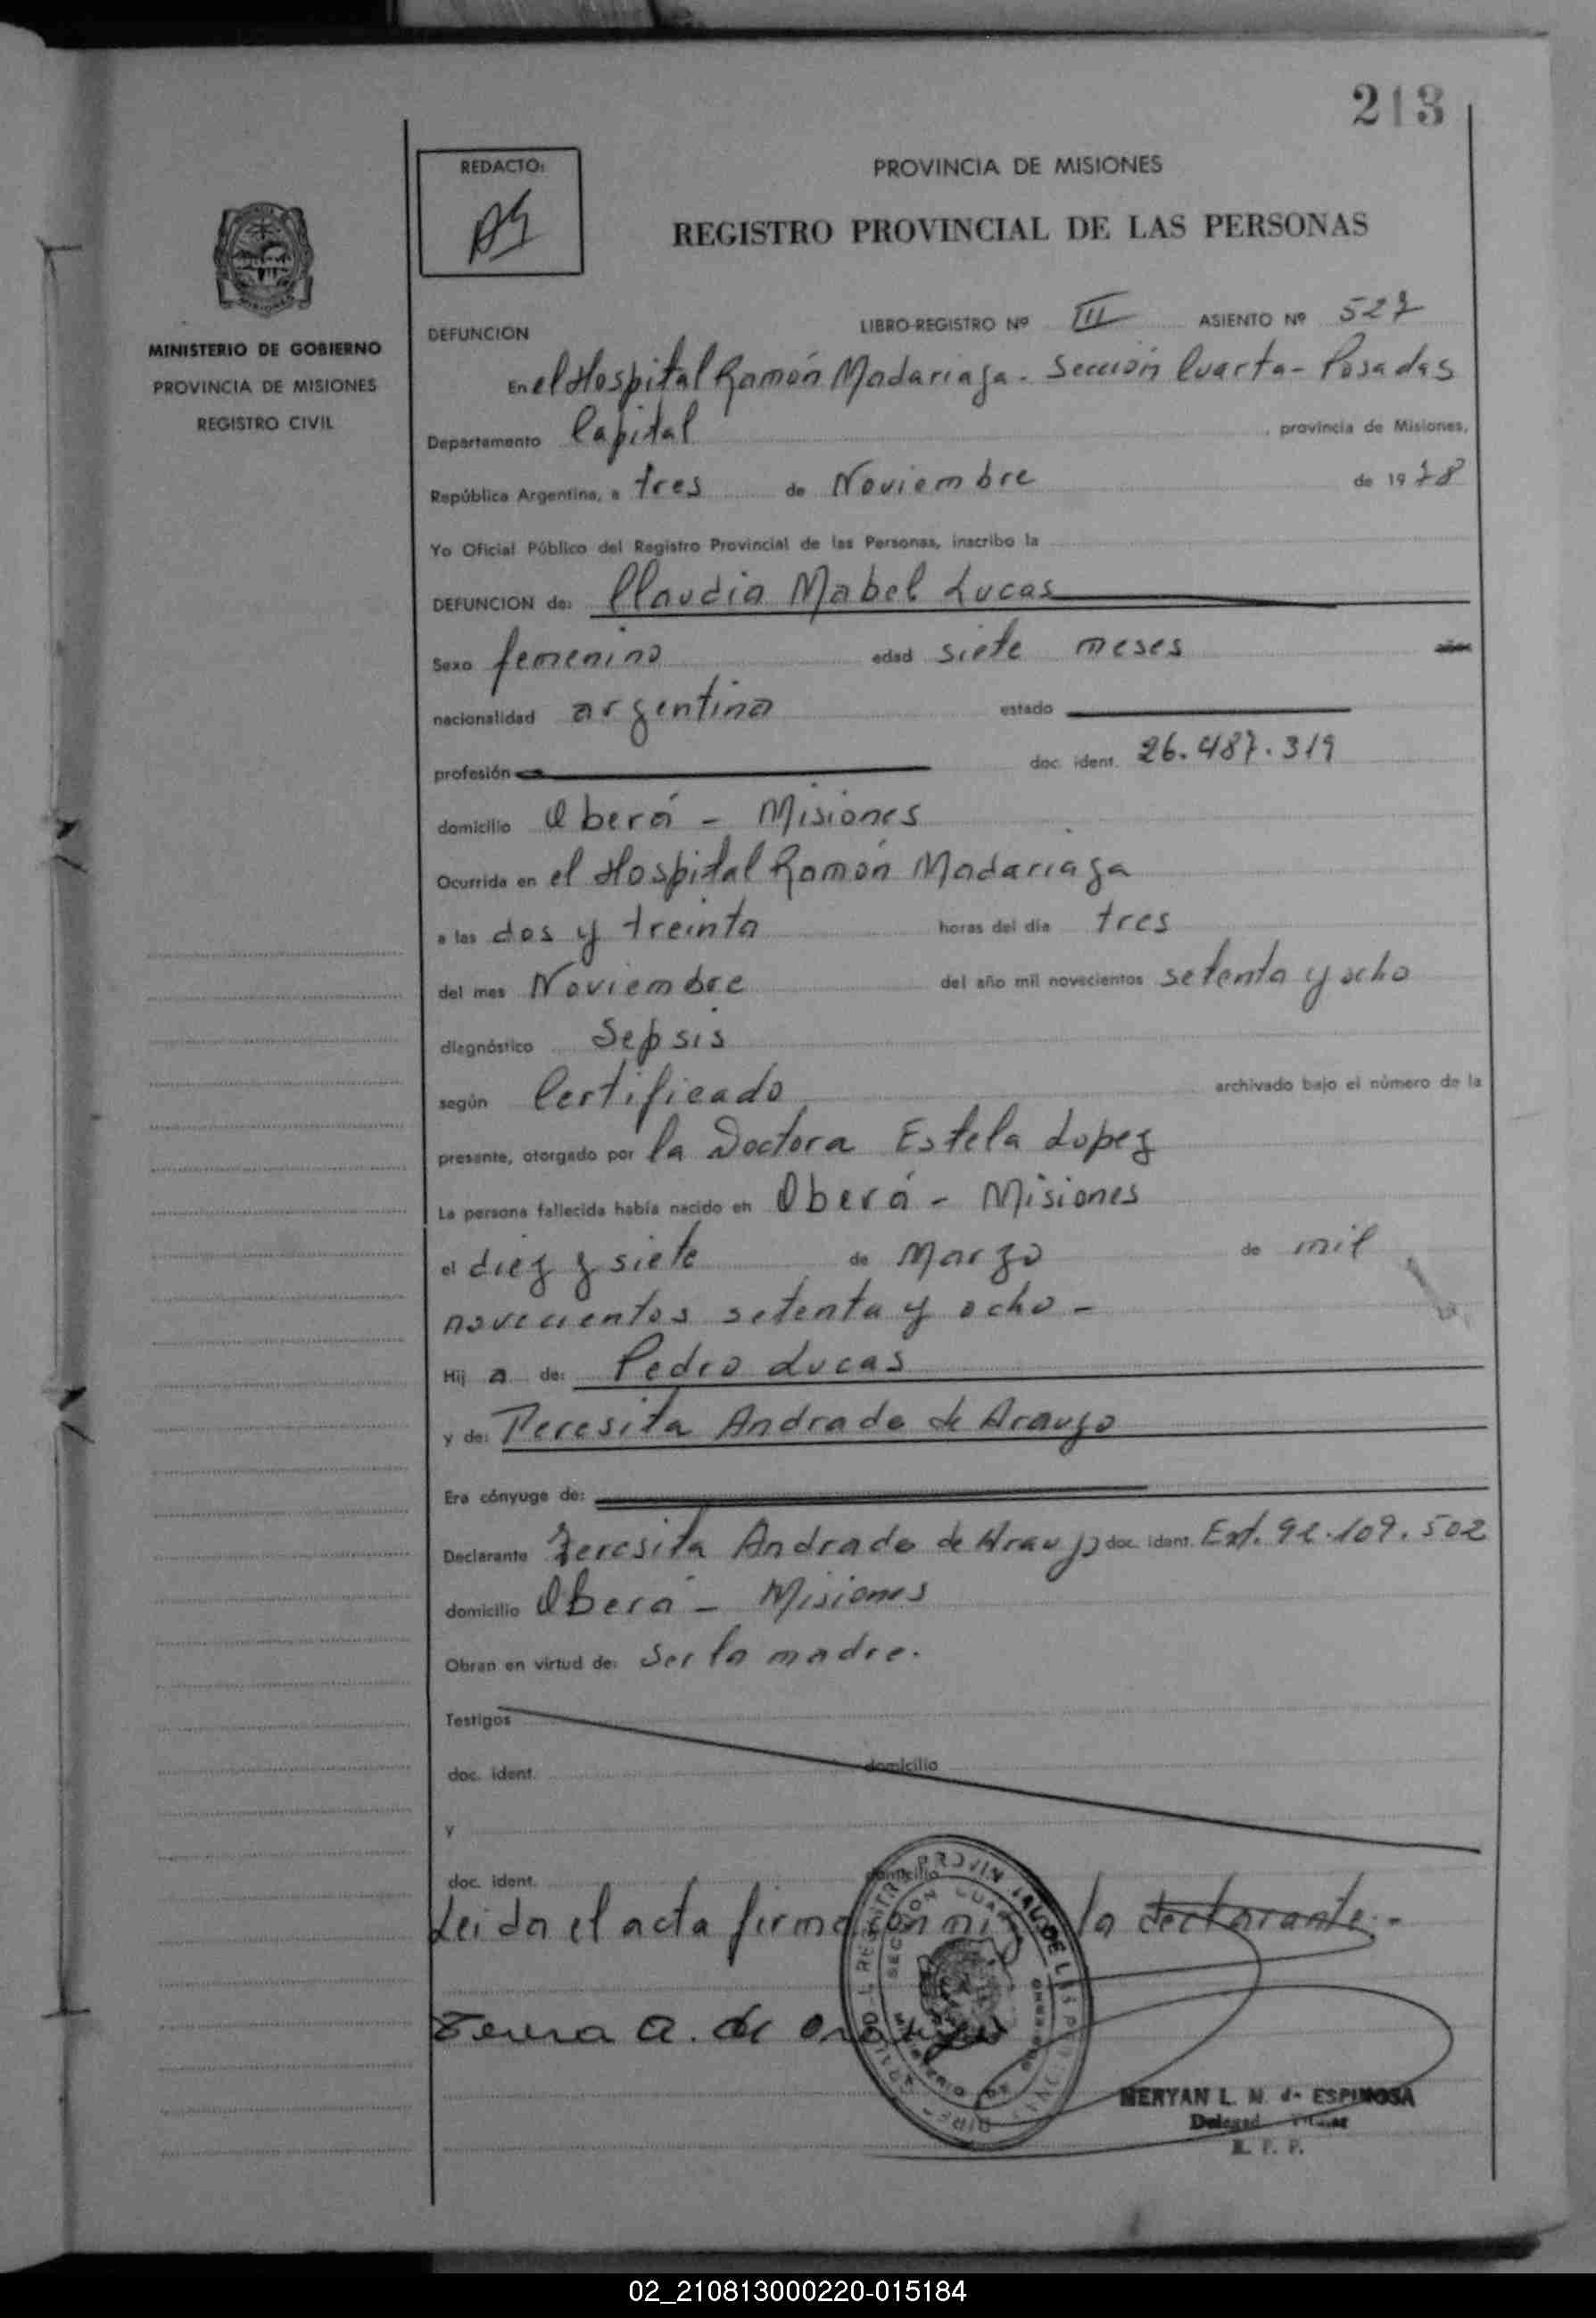 213
REDACTO:
PROVINCIA DE MISIONES
REGISTRO PROVINCIAL DE LAS PERSONAS
MINISTERIO DE GOBIERNO
PROVINCIA DE MISIONES
REGISTRO CIVIL
DEFUNCION LIBRO-REGISTRO Nº III ASIENTO Nº 527
En el Hospital Ramón Madariaga - Sección Cuarta - Posadas
Departamento Capital, provincia de Misiones,
República Argentina, a tres de Noviembre de 1978
Yo Oficial Público del Registro Provincial de las Personas, inscribo la
DEFUNCION de: Claudia Mabel Lucas
Sexo femenino edad siete meses años
nacionalidad argentina estado
profesión doc. ident. 26.487.319
domicilio Oberá - Misiones
Ocurrida en el Hospital Ramón Madariaga
a las dos y treinta horas del día tres
del mes Noviembre del año mil novecientos setenta y ocho
diagnóstico Sepsis
según Certificado archivado bajo el número de la
presente, otorgado por la Doctora Estela Lopez
La persona fallecida había nacido en Oberá - Misiones
el diez y siete de Marzo de mil
novecientos setenta y ocho -
Hij a de: Pedro Lucas
y de: Teresita Andrade de Araujo
Era cónyuge de:
Declarante Teresita Andrade de Araujo doc. ident. Ext. 92.109.502
domicilio Oberá - Misiones
Obran en virtud de: ser la madre.
Testigos
doc. ident. domicilio
y
doc. ident. domicilio
Leida el acta firma con mi la declarante.-
a. de
MERYAN L. M. de ESPINOSA
R. P. P.
02_210813000220-015184